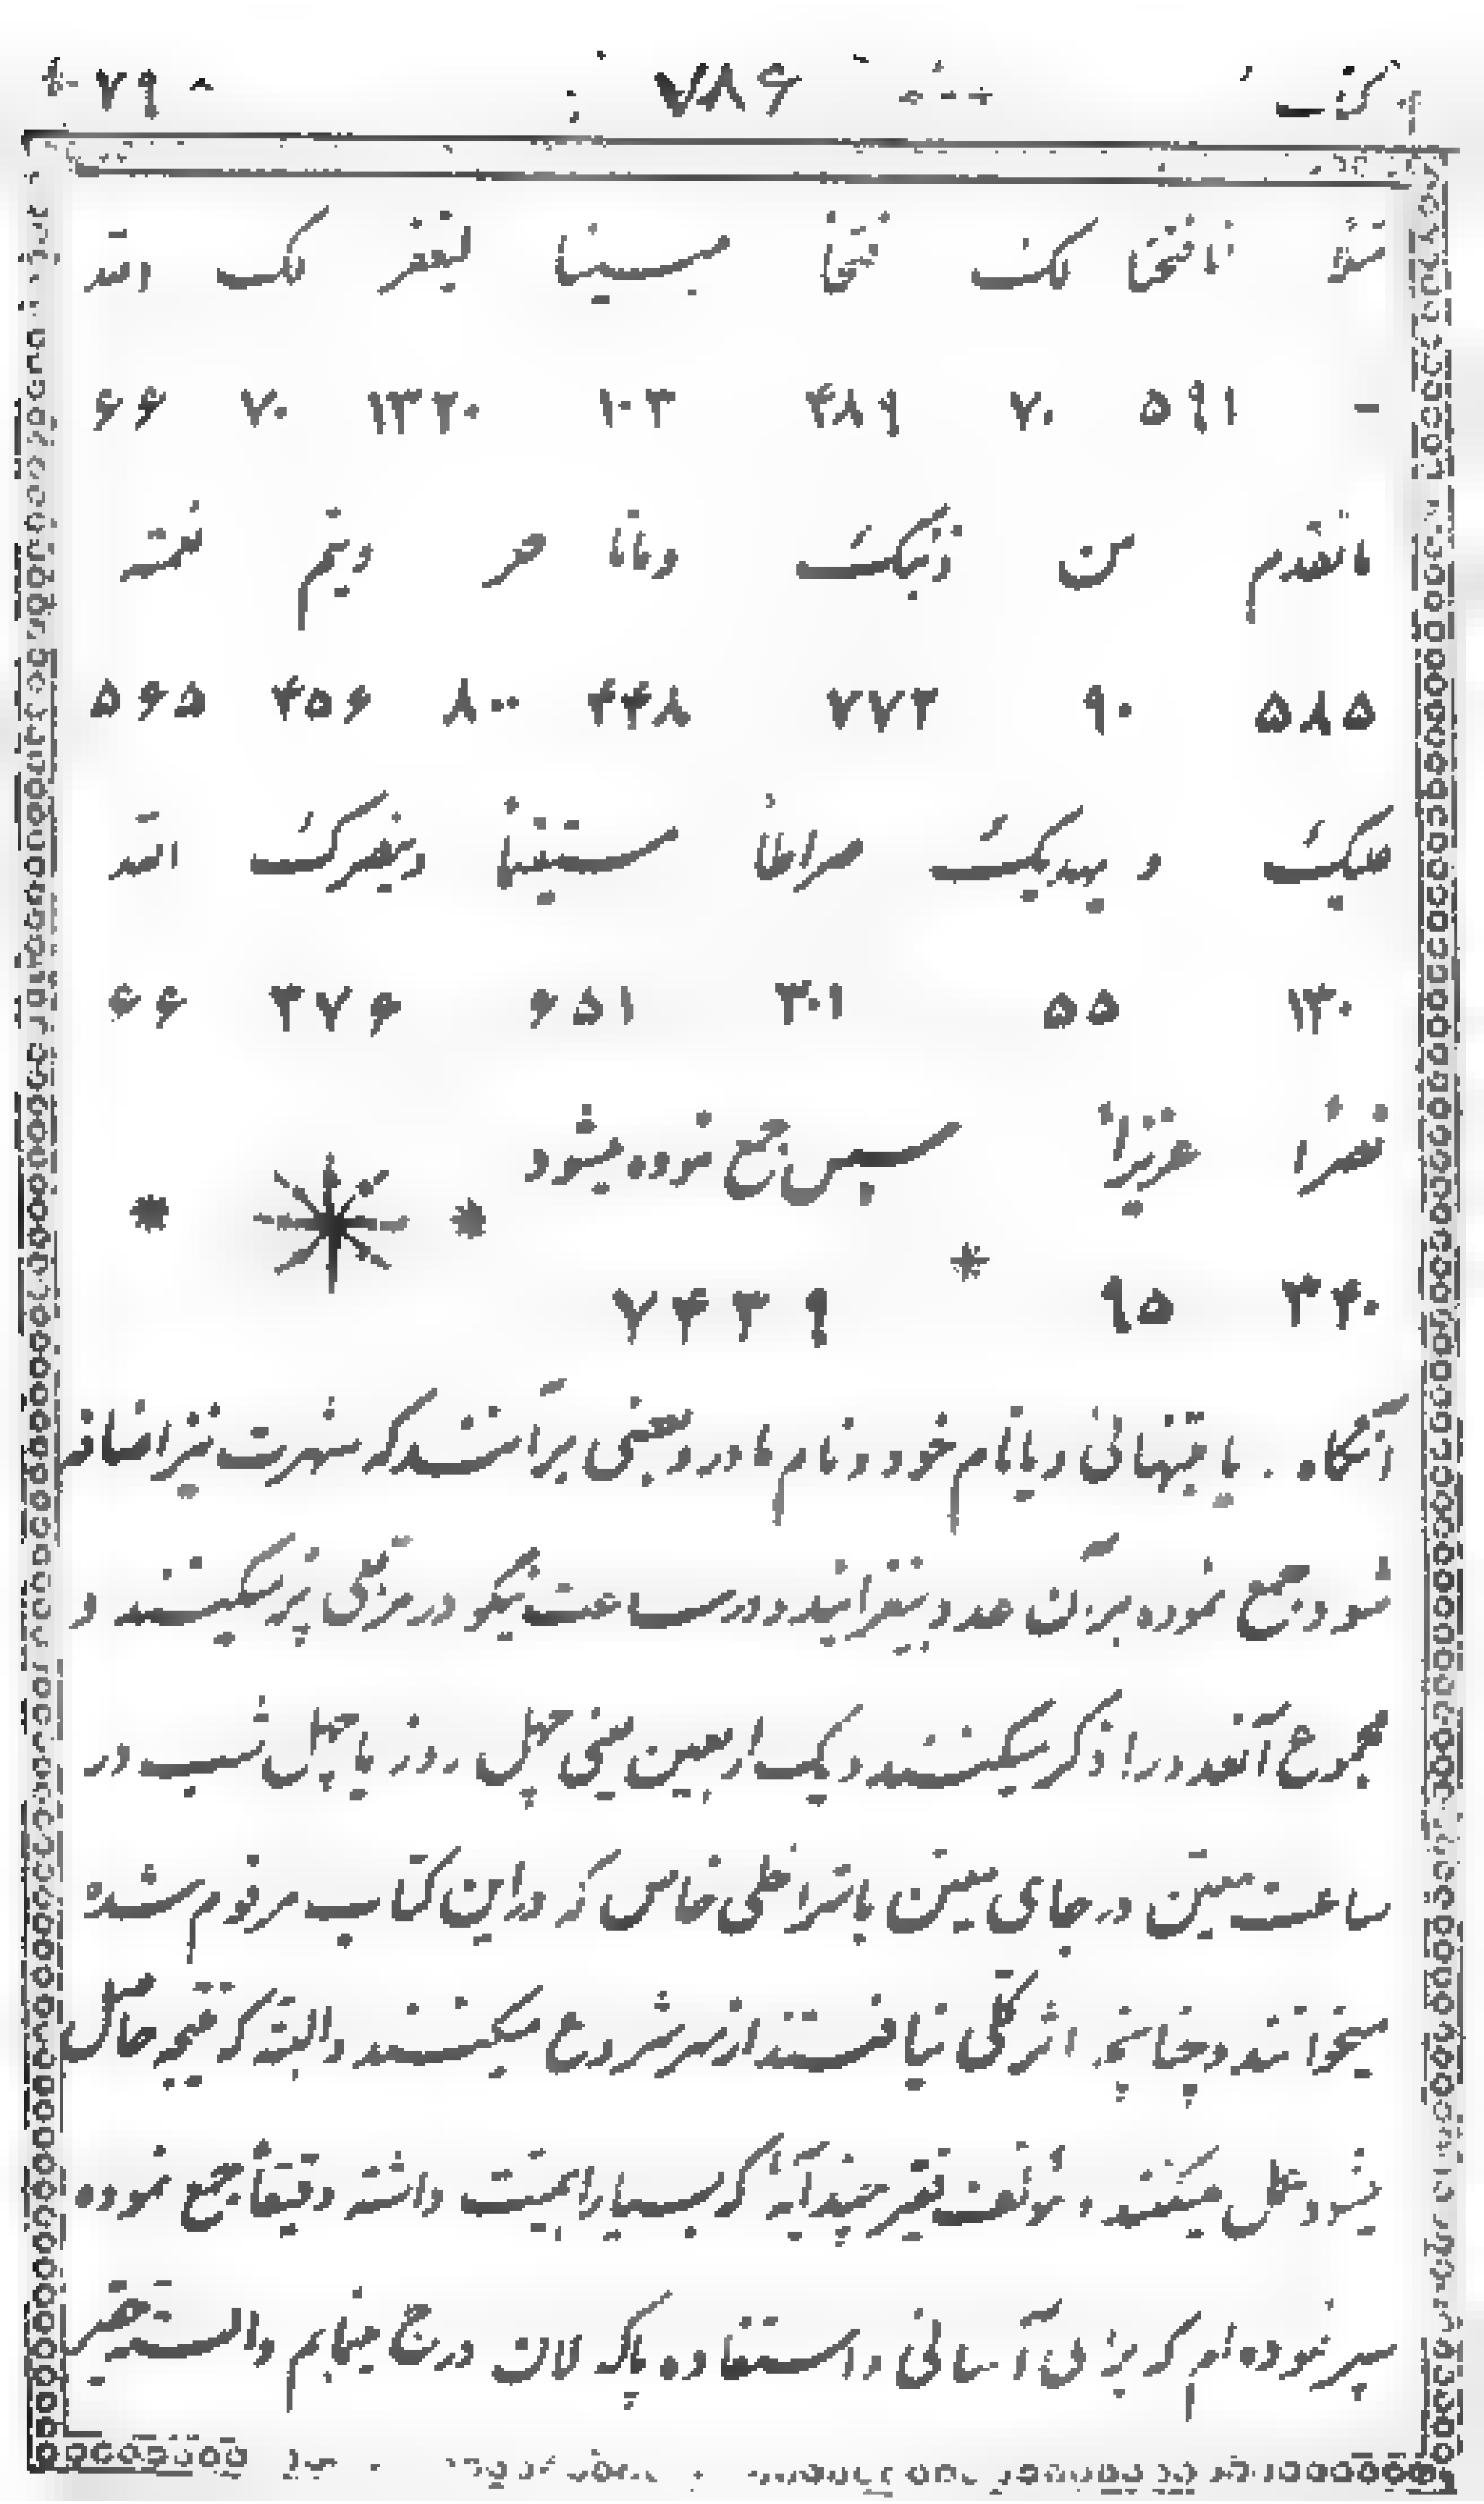 ۷۹ ۷۸۶
انا فتحنا لک فتحا مبینا لیغفر لک الله
- ۵۹۱ ۷۰ ۴۸۹ ۱۰۳ ۱۳۲۰ ۷۰ ۶۶
ماتقدم من ذنبک وماتا خر ویتم نعمته
۵۸۵ ۹۰ ۷۷۲ ۴۴۸ ۸۰۰ ۴۵۶ ۵۶۵
علیک و یهدیک صراطاً مستقیماً وینصرک الله
۱۳۰ ۵۵ ۳۰۱ ۶۵۱ ۳۷۶ ۶۶
نصراً عزیزاً سپس جمع نموده میشود
۳۴۰ ۹۵ * ۷۴۳۹
آنگاه . یا بتنهائی و یا نام خود و نام مادر و بعضی برآنند که شهرت نیز اضافه
شود جمع نموده بر آن عدد بیفزایند و در ساعت نیکو در مربعی پر میکنند و
مجموع آنعدد را ذکر میکنند و یک اربعین یعنی چهل روز یا چهل شب در
ساعت معین در جای معین با شرائطی خاص که در این کتاب مرقوم شده
میخوانند و چنانچه اثر کلی نیافتند از سر شروع میکنند و البته که نتیجه حاصل
میشود عمل میکنند و مؤلف فقیر چند آیهٔ که بسیار اهمیت داشته دقیقاً جمع نموده
سپر نموده ام که برای آسانی و استفاده پاکدلان درج مینمایم والسته حقیر